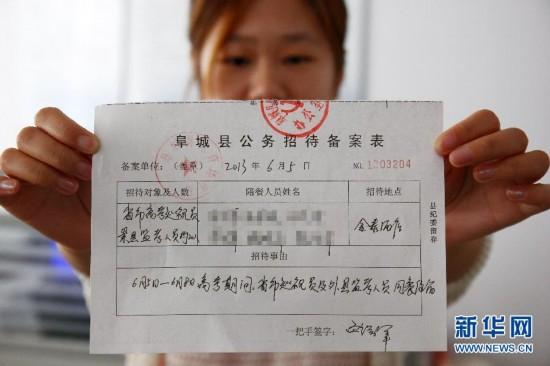 阜城县公务招待备案表
备案单位：（盖章） 2013 年 6 月 5 日 NO. 1003204
招待对象及人数 陪餐人员姓名 招待地点
省市高考巡视员
景县监考人员
招待事由
6月5日—6月8日高考期间，省市巡视员及外县监考人员用餐住宿
一把手签字：
县纪委留存
新华网
WWW.NEWS.CN